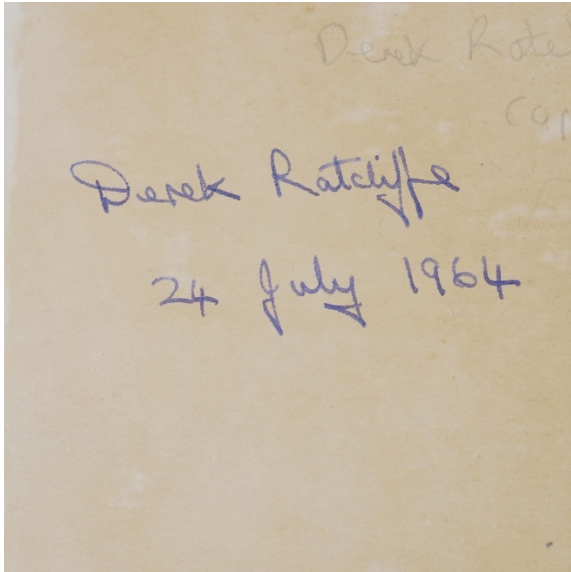 Derek
Derek Ratcliffe
24 July 1964